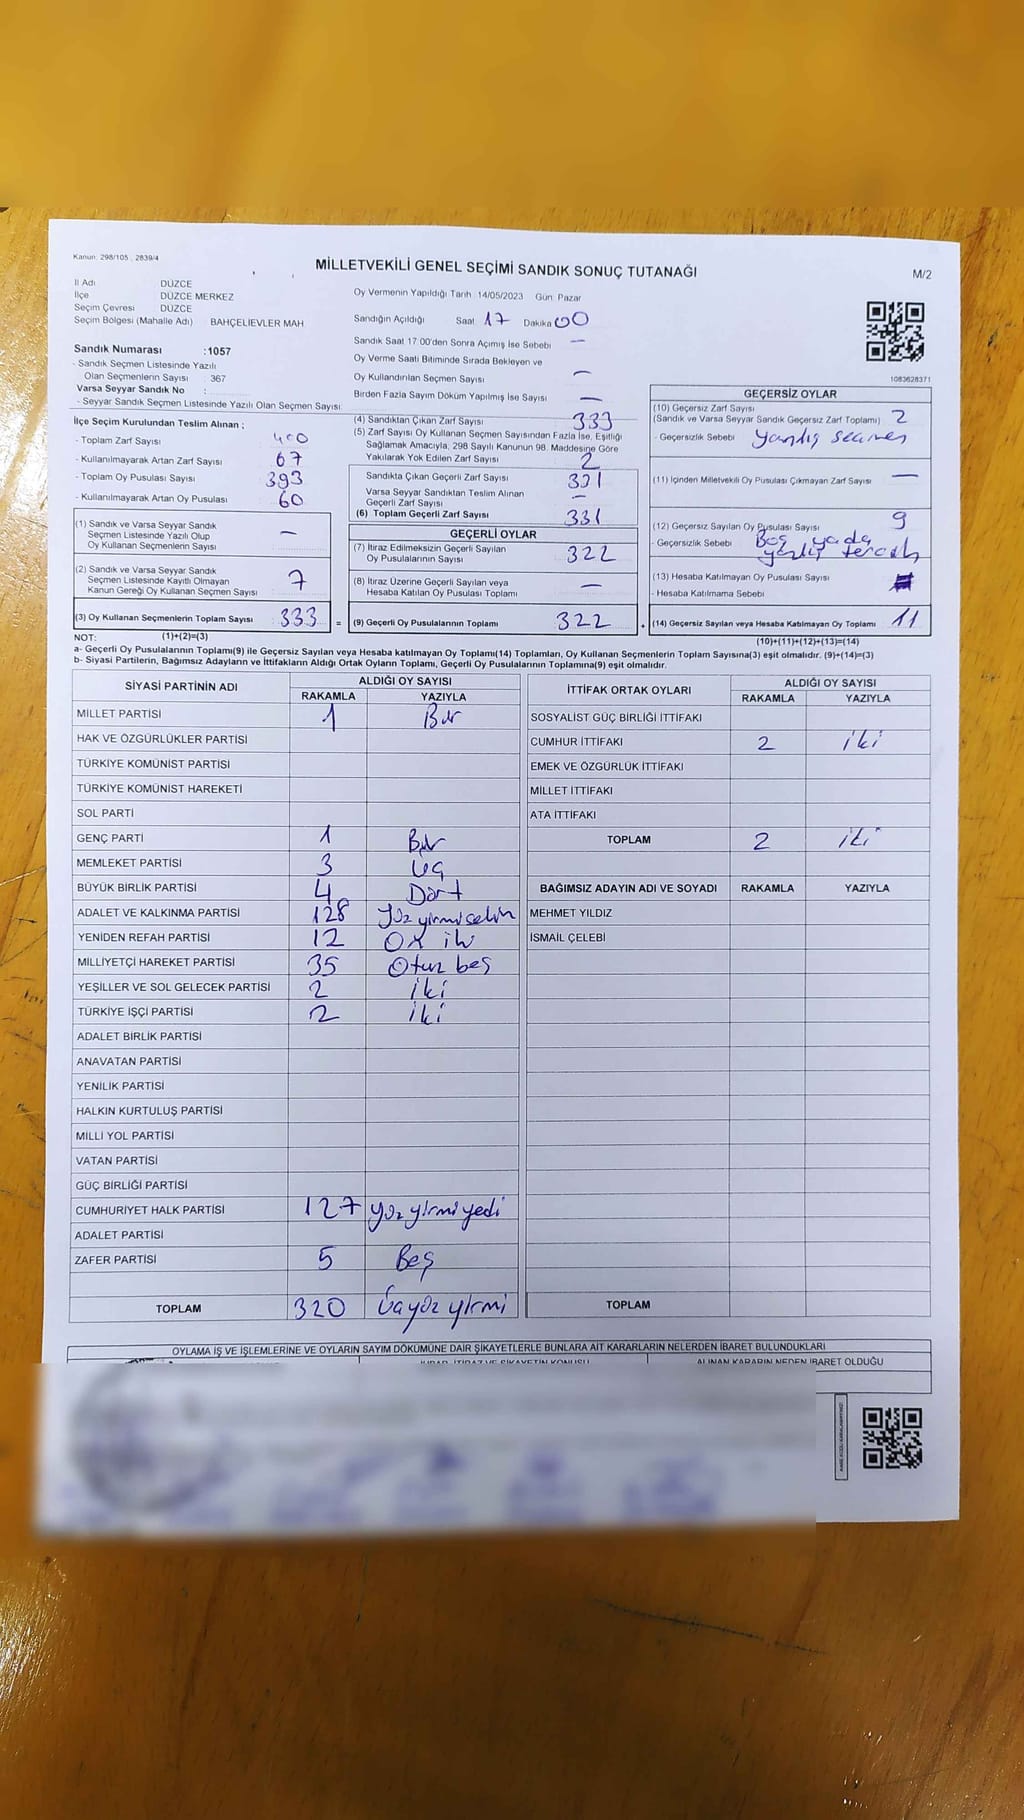 Kanun: 298/105 , 2839/4
MİLLETVEKİLİ GENEL SEÇİMİ SANDIK SONUÇ TUTANAĞI
M/2
İl Adı DÜZCE
İlçe DÜZCE MERKEZ
Seçim Çevresi DÜZCE
Seçim Bölgesi (Mahalle Adı) BAHÇELİEVLER MAH.
Sandık Numarası :1057
- Sandık Seçmen Listesinde Yazılı
Olan Seçmenlerin Sayısı : 367
Varsa Seyyar Sandık No :
- Seyyar Sandık Seçmen Listesinde Yazılı Olan Seçmen Sayısı:
İlçe Seçim Kurulundan Teslim Alınan ;
- Toplam Zarf Sayısı 400
- Kullanılmayarak Artan Zarf Sayısı 67
- Toplam Oy Pusulası Sayısı 393
- Kullanılmayarak Artan Oy Pusulası 60
(1) Sandık ve Varsa Seyyar Sandık
Seçmen Listesinde Yazılı Olup
Oy Kullanan Seçmenlerin Sayısı —
(2) Sandık ve Varsa Seyyar Sandık
Seçmen Listesinde Kayıtlı Olmayan
Kanun Gereği Oy Kullanan Seçmen Sayısı 7
(3) Oy Kullanan Seçmenlerin Toplam Sayısı 333 =
Oy Vermenin Yapıldığı Tarih 14/05/2023 Gün: Pazar
Sandığın Açıldığı Saat 17 Dakika 00
Sandık Saat 17:00'den Sonra Açımış İse Sebebi —
Oy Verme Saati Bitiminde Sırada Bekleyen ve
Oy Kullandırılan Seçmen Sayısı —
Birden Fazla Sayım Döküm Yapılmış İse Sayısı —
(4) Sandıktan Çıkan Zarf Sayısı 333
(5) Zarf Sayısı Oy Kullanan Seçmen Sayısından Fazla İse, Eşitliği
Sağlamak Amacıyla, 298 Sayılı Kanunun 98. Maddesine Göre
Yakılarak Yok Edilen Zarf Sayısı 2
Sandıkta Çıkan Geçerli Zarf Sayısı 331
Varsa Seyyar Sandıktan Teslim Alınan
Geçerli Zarf Sayısı —
(6) Toplam Geçerli Zarf Sayısı 331
GEÇERLİ OYLAR
(7) İtiraz Edilmeksizin Geçerli Sayılan
Oy Pusulalarının Sayısı 322
(8) İtiraz Üzerine Geçerli Sayılan veya
Hesaba Katılan Oy Pusulası Toplamı —
(9) Geçerli Oy Pusulalarının Toplamı 322 +
1083628371
GEÇERSİZ OYLAR
(10) Geçersiz Zarf Sayısı
(Sandık ve Varsa Seyyar Sandık Geçersiz Zarf Toplamı) 2
- Geçersizlik Sebebi Yanlış seçmen
(11) İçinden Milletvekili Oy Pusulası Çıkmayan Zarf Sayısı —
(12) Geçersiz Sayılan Oy Pusulası Sayısı 9
- Geçersizlik Sebebi Boş yada
yanlış tercih
(13) Hesaba Katılmayan Oy Pusulası Sayısı
- Hesaba Katılmama Sebebi
(14) Geçersiz Sayılan veya Hesaba Katılmayan Oy Toplamı 11
NOT: (1)+(2)=(3)
(10)+(11)+(12)+(13)=(14)
a- Geçerli Oy Pusulalarının Toplamı(9) ile Geçersiz Sayılan veya Hesaba katılmayan Oy Toplamı(14) Toplamları, Oy Kullanan Seçmenlerin Toplam Sayısına(3) eşit olmalıdır. (9)+(14)=(3)
b- Siyasi Partilerin, Bağımsız Adayların ve İttifakların Aldığı Ortak Oyların Toplamı, Geçerli Oy Pusulalarının Toplamına(9) eşit olmalıdır.
SİYASİ PARTİNİN ADI ALDIĞI OY SAYISI
RAKAMLA YAZIYLA
MİLLET PARTİSİ 1 Bir
HAK VE ÖZGÜRLÜKLER PARTİSİ
TÜRKİYE KOMÜNİST PARTİSİ
TÜRKİYE KOMÜNİST HAREKETİ
SOL PARTİ
GENÇ PARTİ 1 Bir
MEMLEKET PARTİSİ 3 Üç
BÜYÜK BİRLİK PARTİSİ 4 Dört
ADALET VE KALKINMA PARTİSİ 128 Yüz yirmi sekiz
YENİDEN REFAH PARTİSİ 12 On iki
MİLLİYETÇİ HAREKET PARTİSİ 35 Otuz beş
YEŞİLLER VE SOL GELECEK PARTİSİ 2 iki
TÜRKİYE İŞÇİ PARTİSİ 2 iki
ADALET BİRLİK PARTİSİ
ANAVATAN PARTİSİ
YENİLİK PARTİSİ
HALKIN KURTULUŞ PARTİSİ
MİLLİ YOL PARTİSİ
VATAN PARTİSİ
GÜÇ BİRLİĞİ PARTİSİ
CUMHURİYET HALK PARTİSİ 127 yüz yirmi yedi
ADALET PARTİSİ
ZAFER PARTİSİ 5 Beş
TOPLAM 320 Üçyüz yirmi
İTTİFAK ORTAK OYLARI ALDIĞI OY SAYISI
RAKAMLA YAZIYLA
SOSYALİST GÜÇ BİRLİĞİ İTTİFAKI
CUMHUR İTTİFAKI 2 iki
EMEK VE ÖZGÜRLÜK İTTİFAKI
MİLLET İTTİFAKI
ATA İTTİFAKI
TOPLAM 2 iki
BAĞIMSIZ ADAYIN ADI VE SOYADI RAKAMLA YAZIYLA
MEHMET YILDIZ
İSMAİL ÇELEBİ
TOPLAM
OYLAMA İŞ VE İŞLEMLERİNE VE OYLARIN SAYIM DÖKÜMÜNE DAİR ŞİKAYETLERLE BUNLARA AİT KARARLARIN NELERDEN İBARET BULUNDUKLARI
ALINAN KARARIN NEDEN İBARET OLDUĞU